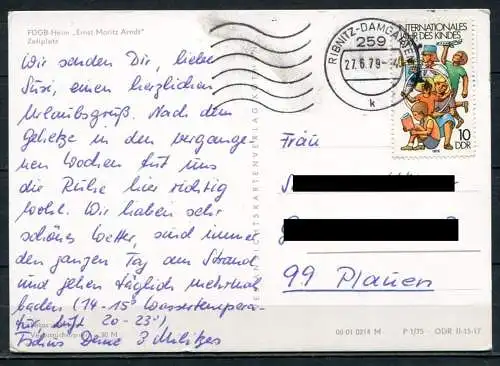 FDGB-Heim „Ernst Moritz Arndt"
Zeltplatz
Wir senden Dir, liebe
Susi, einen herzlichen
Urlaubsgruß. Nach dem
Gehetze in den vergange-
nen Wochen tut uns
die Ruhe hier richtig
wohl. Wir haben sehr
schönes Wetter, sind immer
den ganzen Tag am Strand
und gehen täglich mehrmals
baden (14-15° Wassertempera-
tur Luft 20-23°),
Tschüs Deine 3
RIBNITZ-DAMGARTEN
259
27.6.79
k
INTERNATIONALES
JAHR DES KINDES
10
DDR
Frau
99 Plauen
00 01 0214 M P 1/75 · DDR II-15-17